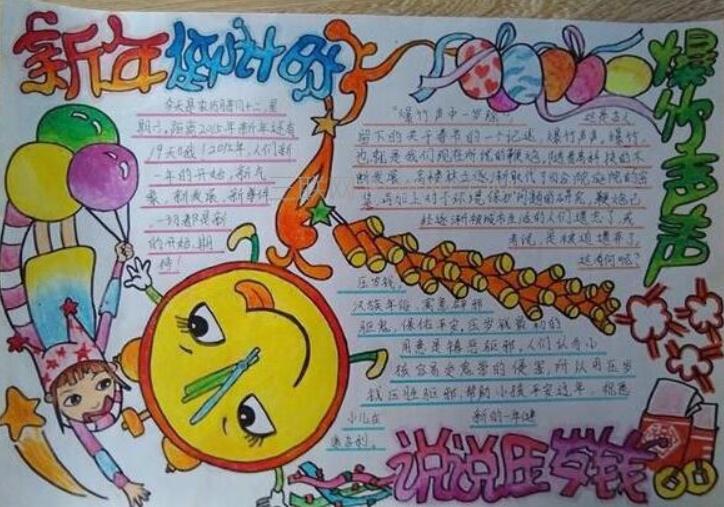 新年倒计时
今天是农历腊月十二，星
期六，距离2015年新年还有
19天哦！2015年，人们新
一年的开始，新气
象，新发展，新事件
一切都是新
的开始，期
待！
爆竹声声
"爆竹声中一岁除"，这是古人
留下的关于春节的一个记述，爆竹声声，爆竹，
也就是我们现在所说的鞭炮，随着高科技的不
断发展，高楼林立逐渐取代了四合院庭院的密
集，再加上对于环境保护问题的研究，鞭炮已
经逐渐被城市生活的人们遗忘了，或
者说，是被迫遗弃了，
这为何呢？
压岁钱，
汉族年俗，寓意辟邪
驱鬼，保佑平安，压岁钱最初的
用意是镇恶驱邪，人们认为小
孩容易受鬼祟的侵害，所以用压岁
钱压祟驱邪，帮助小孩平安过年，祝愿
小儿在新的一年健
康吉利。
说说压岁钱